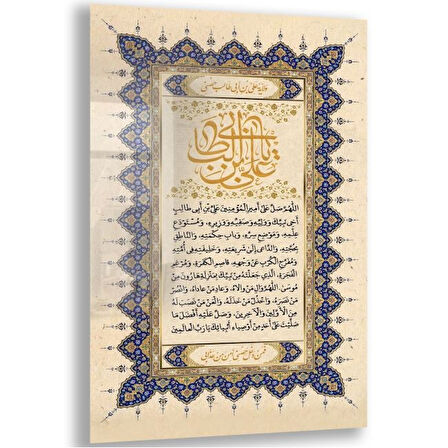 ولاية علي بن أبي طالب حصني
علي بن أبي طالب
اللهم صل على أمير المؤمنين علي بن أبي طالب
أخي نبيك ووليه وصفيه ووزيره، ومستودع
علمه، وموضع سره، وباب حكمته، والناطق
بحجته، والداعي إلى شريعته، وخليفته في أمته
ومفرج الكرب عن وجهه، قاصم الكفرة، ومرغم
الفجرة، الذي جعلته من نبيك بمنزلة هارون من
موسى، اللهم وال من والاه، وعاد من عاداه، وانصر
من نصره، واخذل من خذله، والعن من نصب له
من الأولين والآخرين، وصل عليه أفضل ما
صليت على أحد من أوصياء أنبيائك يا رب العالمين
فمن دخل حصني أمن من عذابي